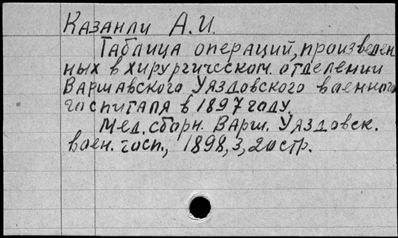 Казанли А.И.
Таблица операций, произведен
ных в хирургическом. отделении
Варшавского Уяздовского военного
госпиталя в 1897 году,
Мед. сборн. Варш. Уяздовск.
воен. госп., 1898, 3, 20 стр.